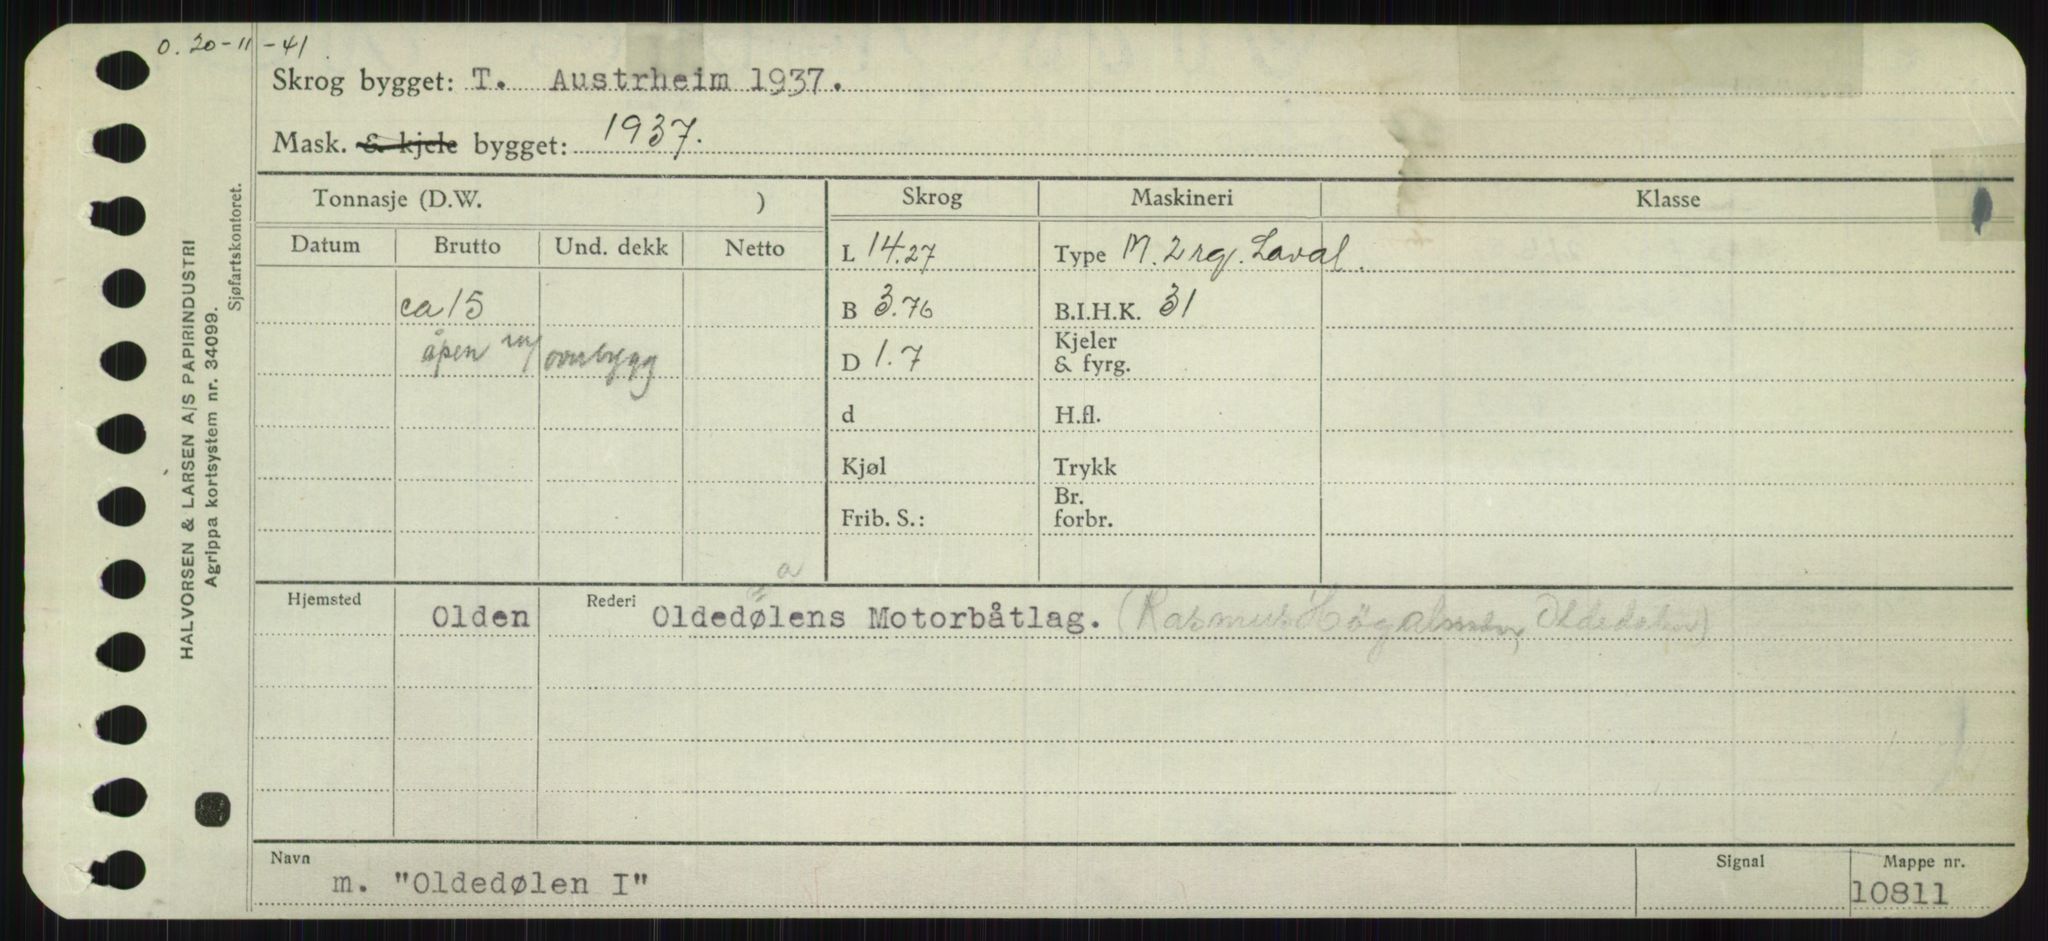 O. 20-11-41
Skrog bygget: T. Austrheim 1937.
Mask. & kjele bygget: 1937.
Tonnasje (D.W. )
Skrog
Maskineri
Klasse
Datum
Brutto
Und. dekk
Netto
L 14.27
Type M. 2 rg. Laval.
ca 15
B 3.76
B.I.H.K. 31
åpen m/ overbygg
D 1.7
Kjeler
& fyrg.
d
H.fl.
Kjøl
Trykk
Frib. S.:
Br.
forbr.
a
Hjemsted
Olden
Rederi
Oldedølens Motorbåtlag. (Rasmus Oldedalen)
Navn
m. "Oldedølen I"
Signal
Mappe nr.
10811
HALVORSEN & LARSEN A/S PAPIRINDUSTRI
Agrippa kortsystem nr. 34099.
Sjøfartskontoret.